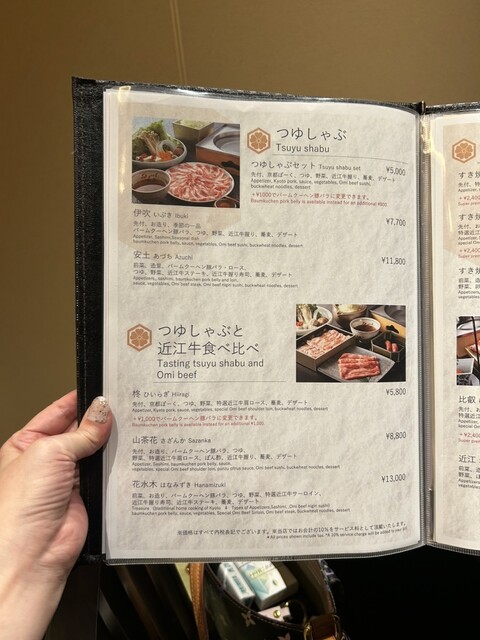 つゆしゃぶ
Tsuyu shabu
つゆしゃぶセット Tsuyu shabu set ¥5,000
先付、京都ぽーく、つゆ、野菜、近江牛握り、蕎麦、デザート
Appetizer, Kyoto pork, sauce, vegetables, Omi beef sushi,
buckwheat noodles, dessert
+¥1000でバームクーヘン豚バラに変更できます。
Baumkuchen pork belly is available instead for an additional ¥800.
伊吹 いぶき Ibuki ¥7,700
先付、お造り、季節の一品
バームクーヘン豚バラ、つゆ、野菜、近江牛握り、蕎麦、デザート
Appetizer, Sashimi, Seasonal dish
baumkuchen pork belly, sauce, vegetables, Omi beef sushi, buckwheat noodles, dessert
安土 あづち Azuchi ¥11,800
前菜、造里、バームクーヘン豚バラ・ロース、
つゆ、野菜、近江牛ステーキ、近江牛握り寿司、蕎麦、デザート
Appetizers, sashimi, baumkuchen pork belly and loin,
sauce, vegetables, Omi beef steak, Omi beef nigiri sushi, buckwheat noodles, dessert
つゆしゃぶと
近江牛食べ比べ
Tasting tsuyu shabu and
Omi beef
柊 ひいらぎ Hiiragi ¥5,800
先付、京都ぽーく、つゆ、野菜、特選近江牛肩ロース、蕎麦、デザート
Appetizer, Kyoto pork, sauce, vegetables, special Omi beef shoulder loin, buckwheat noodles, dessert
+¥1,000でバームクーヘン豚バラに変更できます。
Baumkuchen pork belly is available instead for an additional ¥1,000.
山茶花 さざんか Sazanka ¥8,800
先付、お造り、バームクーヘン豚バラ、つゆ
野菜、特選近江牛肩ロース、ぽん酢、近江牛握り、蕎麦、デザート
Appetizer, Sashimi, baumkuchen pork belly, sauce,
vegetables, special Omi beef shoulder loin, ponzu citrus sauce, Omi beef sushi, buckwheat noodles, dessert
花水木 はなみずき Hanamizuki ¥13,000
前菜、お造り、バームクーヘン豚バラ、つゆ、野菜、特選近江牛サーロイン、
近江牛握り寿司、近江牛ステーキ、蕎麦、デザート
baumkuchen pork belly, sauce, vegetables, Special Omi Beef Sirloin, Omi beef steak, buckwheat noodles, dessert
※価格はすべて内税表記でございます。※当店ではお会計の10%をサービス料として頂戴いたします。
※All prices shown include tax. ※10% service charge will be added to your bill.
すき焼
すき焼
すき焼
比叡
近江